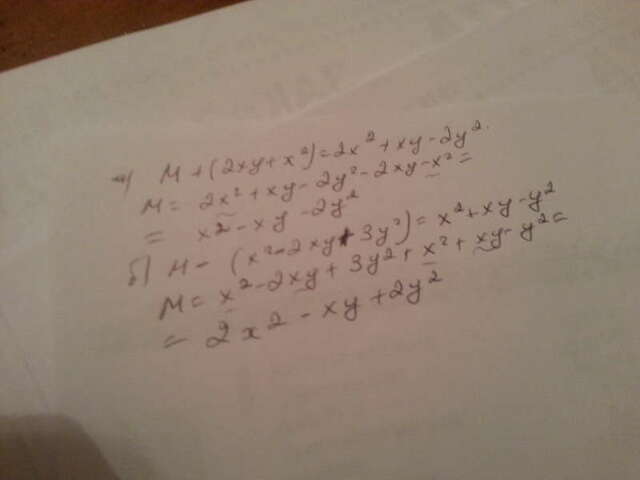 а) M + (2xy + x²) = 2x² + xy - 2y².
M = 2x² + xy - 2y² - 2xy - x² =
= x² - xy - 2y²
б) M - (x² - 2xy + 3y²) = x² + xy - y²
M = x² - 2xy + 3y² + x² + xy - y² =
= 2x² - xy + 2y²